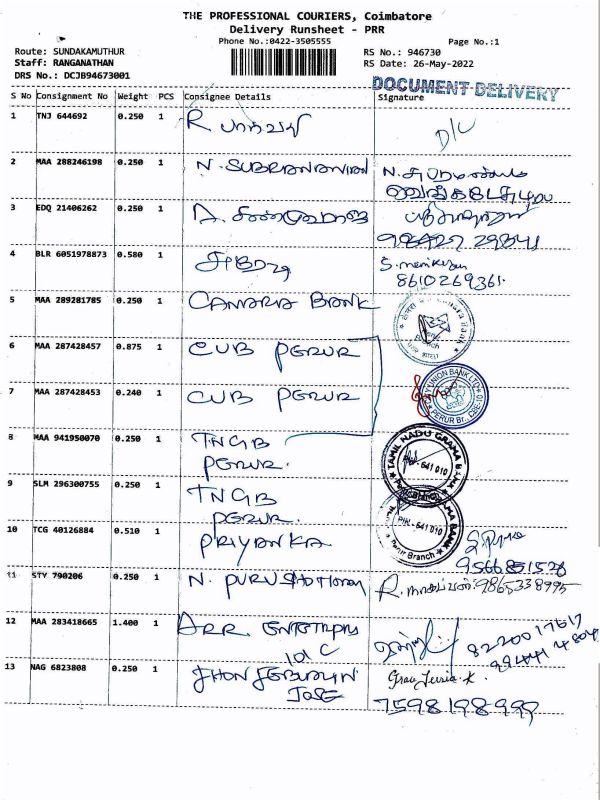 THE PROFESSIONAL COURIERS, Coimbatore
Delivery Runsheet - PRR
Phone No.:0422-3505555
Page No.:1
Route: SUNDAKAMUTHUR
RS No.: 946730
Staff: RANGANATHAN
RS Date: 26-May-2022
DRS No.: DCJB94673001
DOCUMENT DELIVERY
S No Consignment No Weight PCS Consignee Details Signature
1 TNJ 644692 0.250 1 R D/C
2 MAA 288246198 0.250 1 N. N.
3 EDQ 21406262 0.250 1 A.
4 BLR 6051978873 0.580 1 S.
8610269361.
5 MAA 289281785 0.250 1 CANARA BANK
6 MAA 287428457 0.875 1 CUB PERUR
7 MAA 287428453 0.240 1 CUB PERUR
UNION BANK LTD
PERUR Br., CBE-10
8 MAA 941950070 0.250 1 TNGB
PERUR.
TAMIL NADU GRAMA BANK
641 010
9 SLM 296300755 0.250 1 TNGB
PERUR.
PIN - 641 010
GRAMA BANK
Perur Branch
10 TCG 40126884 0.510 1 PRIYANKA
11 STY 790206 0.250 1 N. R. 9865338995
12 MAA 283418665 1.400 1 ARR.
13 NAG 6823808 0.250 1 JHON
JOSE
7598198999